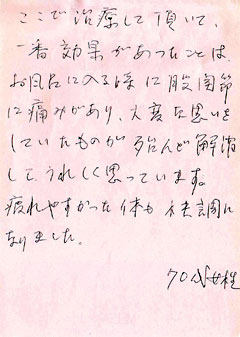 ここで治療して頂いて、
一番効果があったことは、
お風呂に入る時に股関節
に痛みがあり、大変な思いを
していたものが殆んど解消
して、うれしく思っています。
疲れやすかった体も快調に
なりました。
70代女性